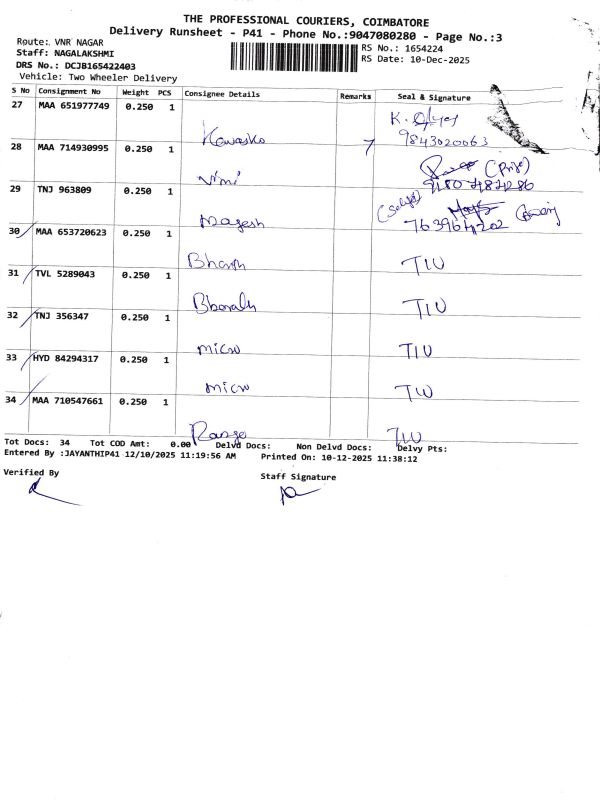 THE PROFESSIONAL COURIERS, COIMBATORE
Delivery Runsheet - P41 - Phone No.:9047080280 - Page No.:3
Route: VNR NAGAR
Staff: NAGALAKSHMI
DRS No.: DCJB165422403
Vehicle: Two Wheeler Delivery
RS No.: 1654224
RS Date: 10-Dec-2025
S No Consignment No Weight PCS Consignee Details Remarks Seal & Signature
27 MAA 651977749 0.250 1 K.
9843020063
28 MAA 714930995 0.250 1
Vimi
29 TNJ 963809 0.250 1
Magesh
30 MAA 653720623 0.250 1
TIU
31 TVL 5289043 0.250 1
TIU
32 TNJ 356347 0.250 1
micro TIU
33 HYD 84294317 0.250 1
micro TIU
34 MAA 710547661 0.250 1
TIU
Tot Docs: 34 Tot COD Amt: 0.00 Delvd Docs: Non Delvd Docs: Delvy Pts:
Entered By :JAYANTHIP41 12/10/2025 11:19:56 AM Printed On: 10-12-2025 11:38:12
Verified By
Staff Signature